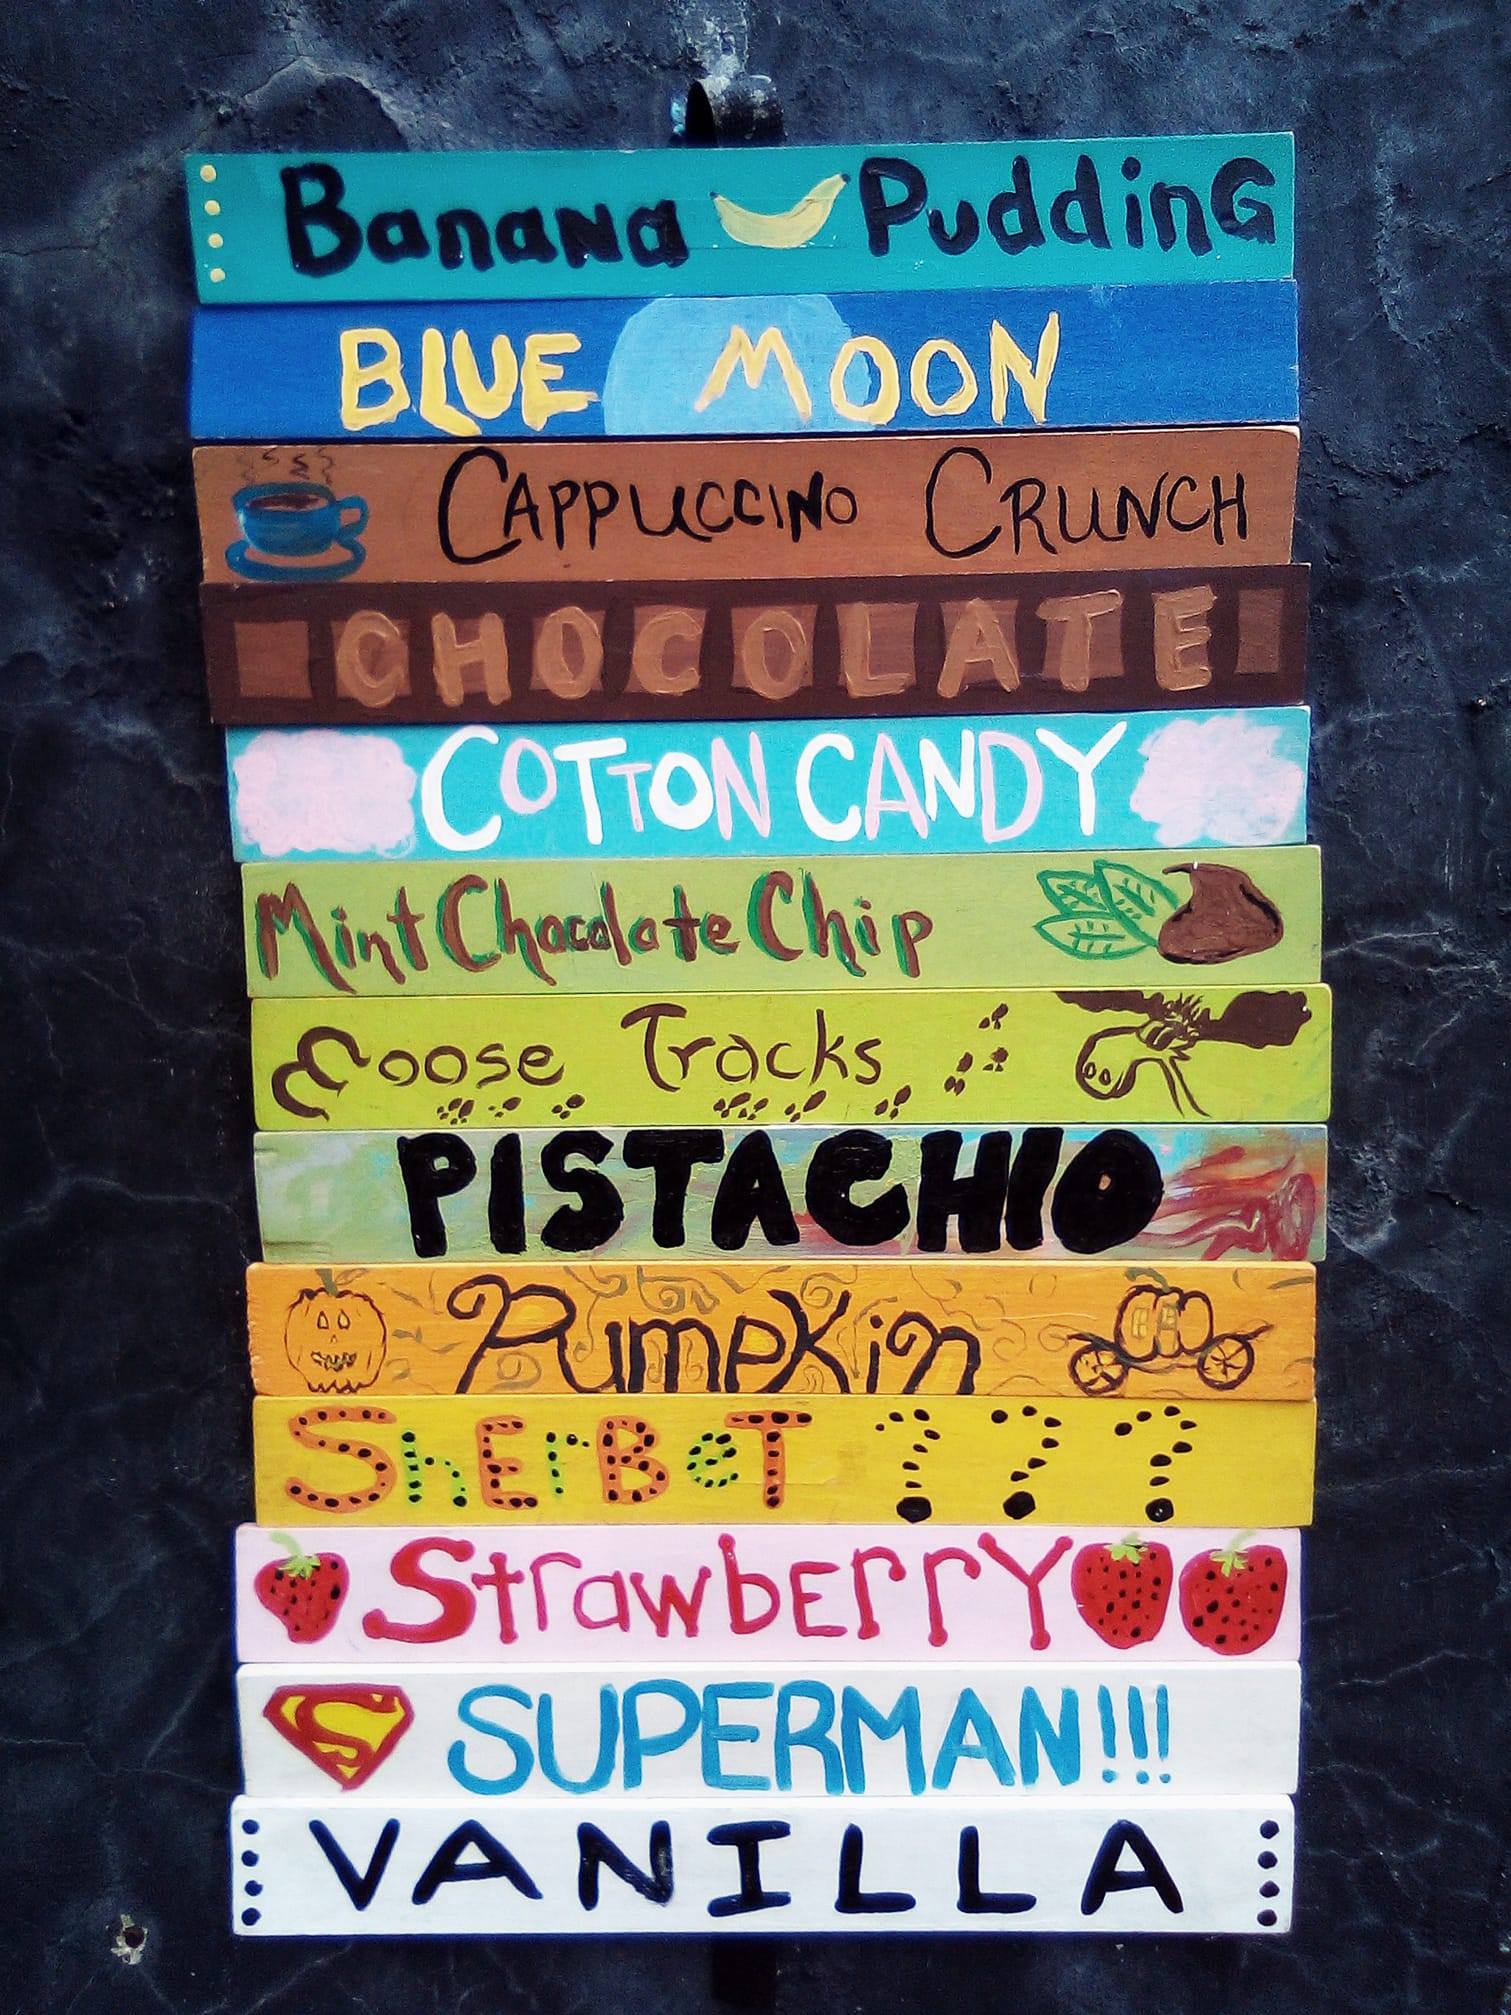 Banana Pudding
BLUE MOON
CAPPUCCINO CRUNCH
CHOCOLATE
COTTON CANDY
Mint Chocolate Chip
Moose Tracks
PISTACHIO
Pumpkin
ShErBeT ???
StrawbErrY
S SUPERMAN!!!
VANILLA